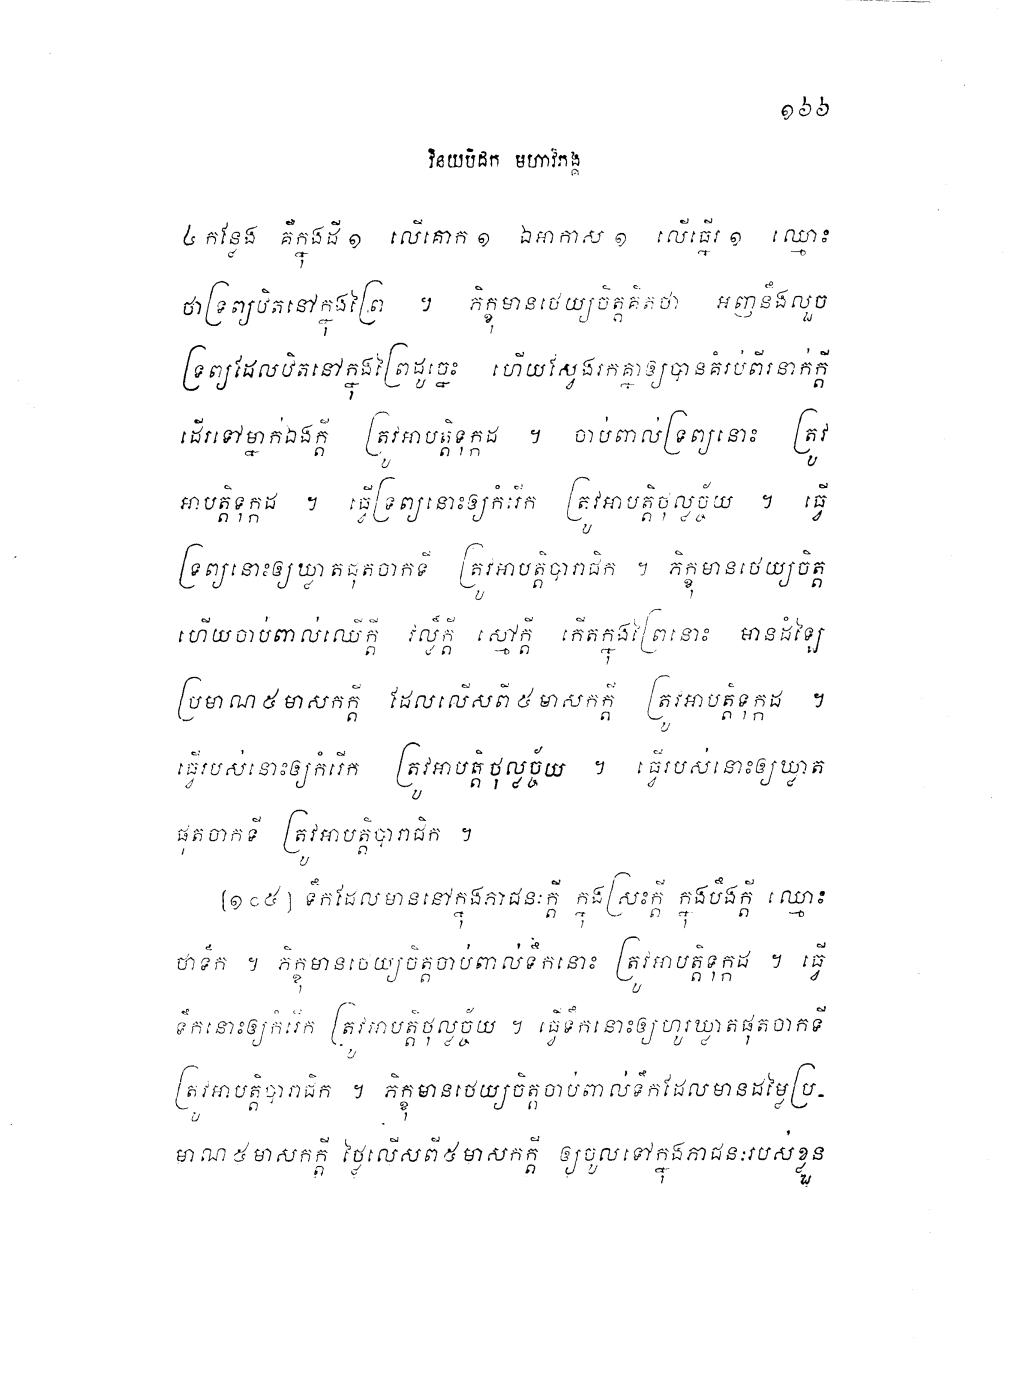 ១៦៦
វិនយបិដក មហាវិភង្គ
៤ កន្លែង គឺក្នុងដី ១ លើគោក ១ ឯអាកាស ១ លើធ្នើរ ១ ឈ្មោះ
ថាទ្រព្យឋិតនៅក្នុងព្រៃ ។ ភិក្ខុមានថេយ្យចិត្តគិតថា អញនឹងលួច
ទ្រព្យដែលឋិតនៅក្នុងព្រៃដូច្នេះ ហើយស្វែងរកគ្នាឲ្យបានគំរប់ពីរនាក់ក្តី
ដើរទៅម្នាក់ឯងក្តី ត្រូវអាបត្តិទុក្កដ ។ ចាប់ពាល់ទ្រព្យនោះ ត្រូវ
អាបត្តិទុក្កដ ។ ធ្វើទ្រព្យនោះឲ្យកំរើក ត្រូវអាបត្តិថុល្លច្ច័យ ។ ធ្វើ
ទ្រព្យនោះឲ្យឃ្លាតផុតចាកទី ត្រូវអាបត្តិបារាជិក ។ ភិក្ខុមានថេយ្យចិត្ត
ហើយចាប់ពាល់ឈើក្តី វល្លិ៍ក្តី ស្មៅក្តី កើតក្នុងព្រៃនោះ មានដំឡៃ
ប្រមាណ៥មាសកក្តី ដែលលើសពី៥មាសកក្តី ត្រូវអាបត្តិទុក្កដ ។
ធ្វើរបស់នោះឲ្យកំរើក ត្រូវអាបត្តិថុល្លច្ច័យ ។ ធ្វើរបស់នោះឲ្យឃ្លាត
ផុតចាកទី ត្រូវអាបត្តិបារាជិក ។
[១០៥] ទឹកដែលមាននៅក្នុងភាជនៈក្តី ក្នុងស្រះក្តី ក្នុងបឹងក្តី ឈ្មោះ
ថាទឹក ។ ភិក្ខុមានថេយ្យចិត្តចាប់ពាល់ទឹកនោះ ត្រូវអាបត្តិទុក្កដ ។ ធ្វើ
ទឹកនោះឲ្យកំរើក ត្រូវអាបត្តិថុល្លច្ច័យ ។ ធ្វើទឹកនោះឲ្យហូរឃ្លាតផុតចាកទី
ត្រូវអាបត្តិបារាជិក ។ ភិក្ខុមានថេយ្យចិត្តចាប់ពាល់ទឹកដែលមានដម្លៃប្រ-
មាណ៥មាសកក្តី ថ្លៃលើសពី៥មាសកក្តី ឲ្យចូលទៅក្នុងភាជនៈរបស់ខ្លួន